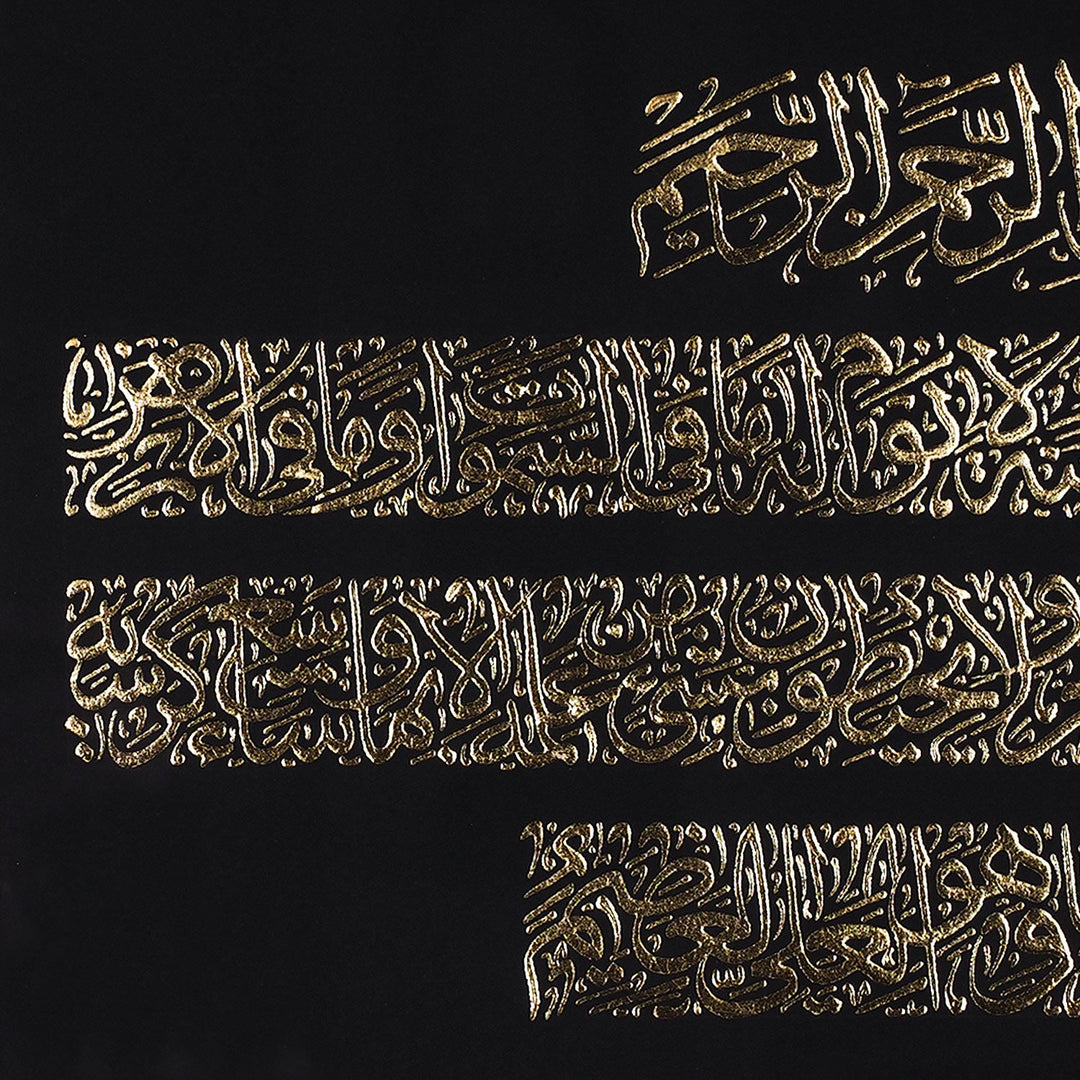 الرَّحْمٰنِ الرَّحِيمِ
وَلَا نَوْمٌ لَهُ مَا فِي السَّمٰوَاتِ وَمَا فِي الْاَرْضِ
وَلَا يُحِيطُونَ بِشَيْءٍ مِنْ عِلْمِهِ اِلَّا بِمَا شَاءَ وَسِعَ كُرْسِيُّهُ
وَهُوَ الْعَلِيُّ الْعَظِيمُ